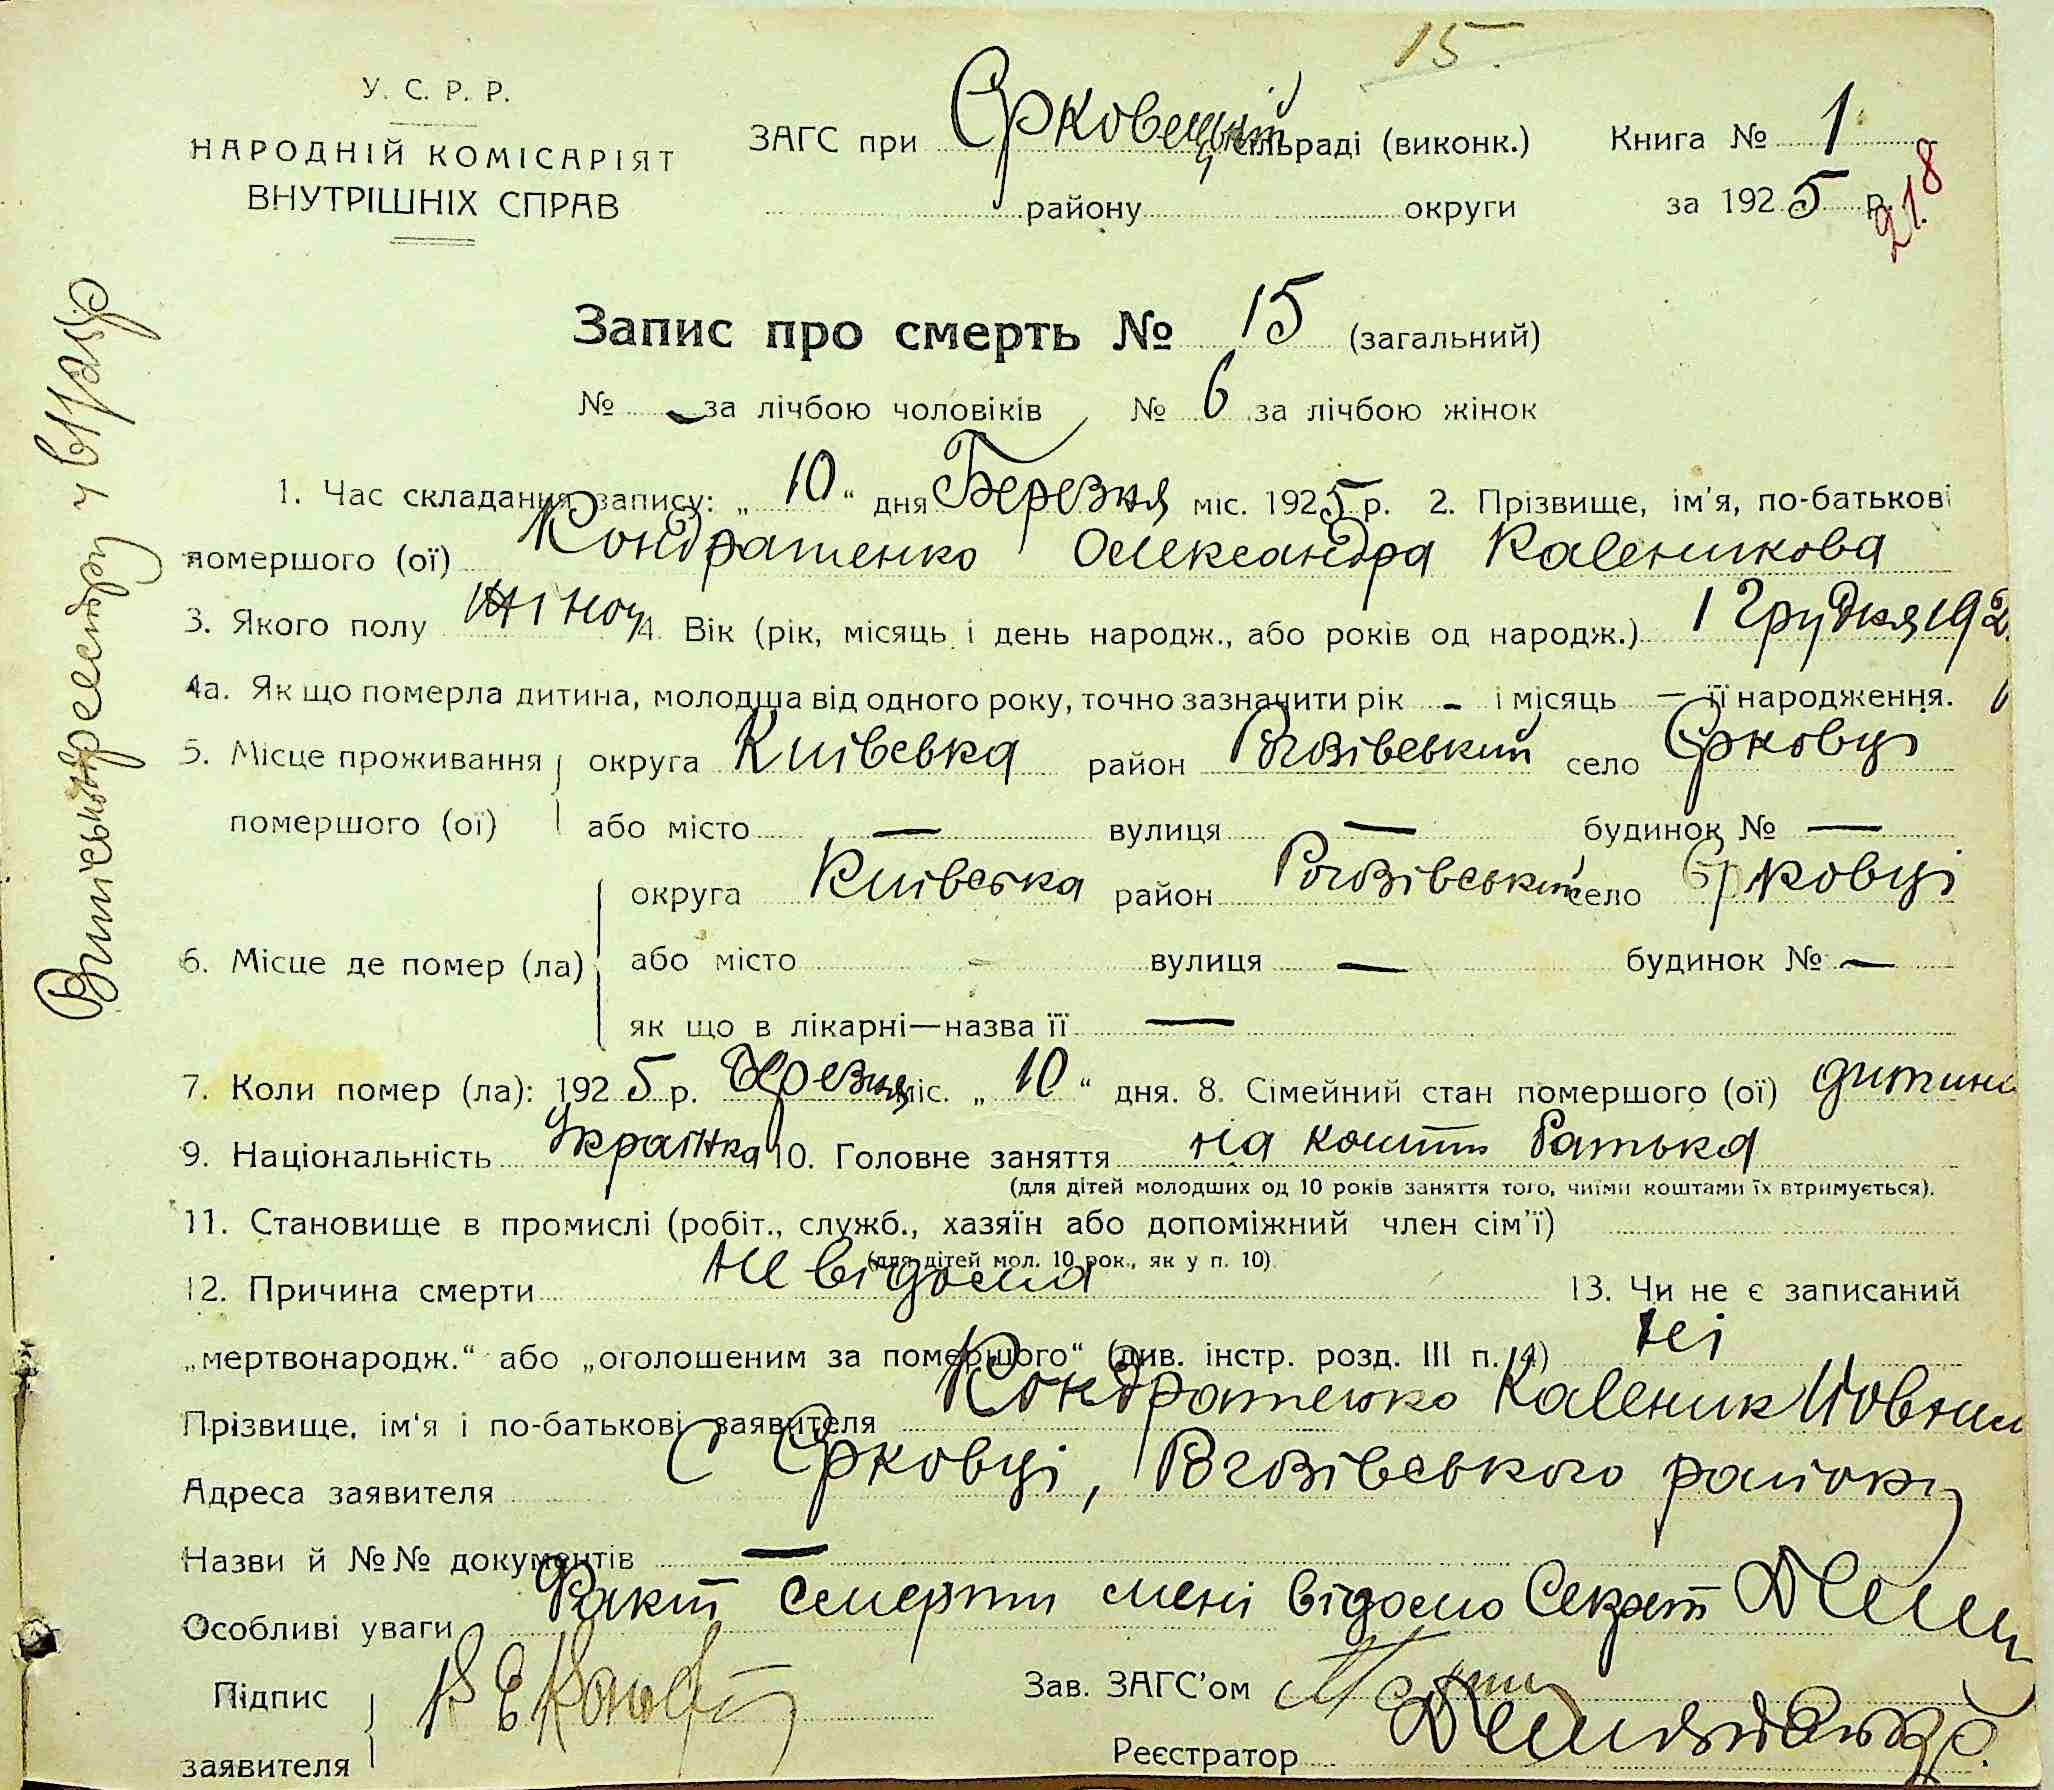 15.
У. С. Р. Р.
НАРОДНІЙ КОМІСАРІЯТ
ВНУТРІШНІХ СПРАВ
ЗАГС при Єрковецькій сільраді (виконк.) Книга № 1
району округи за 1925 р.
218
Запис про смерть № 15 (загальний)
№ - за лічбою чоловіків № 6 за лічбою жінок
1. Час складання запису: „10“ дня Березня міс. 1925 р. 2. Прізвище, ім'я, по-батькові
помершого (ої) Кондратенко Олександра Каленикова
3. Якого полу жіноч 4. Вік (рік, місяць і день народж., або років од народж.) 1 Грудня 192
4а. Як що померла дитина, молодша від одного року, точно зазначити рік - і місяць — її народження.
5. Місце проживання округа Київська район Рогозівський село Єрковці
помершого (ої) або місто — вулиця — будинок № —
округа Київська район Рогозівський село Єрковці
6. Місце де помер (ла) або місто - вулиця — будинок № —
як що в лікарні—назва її —
7. Коли помер (ла): 1925 р. Березня міс. „10“ дня. 8. Сімейний стан помершого (ої) дитина
9. Національність Українка 10. Головне заняття на кошти батька
(для дітей молодших од 10 років заняття того, чиїми коштами їх втримується).
11. Становище в промислі (робіт., служб., хазяїн або допоміжний член сім'ї)
(для дітей мол. 10 рок., як у п. 10)
12. Причина смерти не відома 13. Чи не є записаний
„мертвонародж.“ або „оголошеним за помершого“ (див. інстр. розд. III п. 4) ні
Прізвище, ім'я і по-батькові заявителя Кондратенко Каленик
Адреса заявителя С Єрковці, Вгозівського району
Назви й №№ документів —
Особливі уваги Факт смерти мені відомо Секрет
Підпис
заявителя
Зав. ЗАГС'ом
Реєстратор